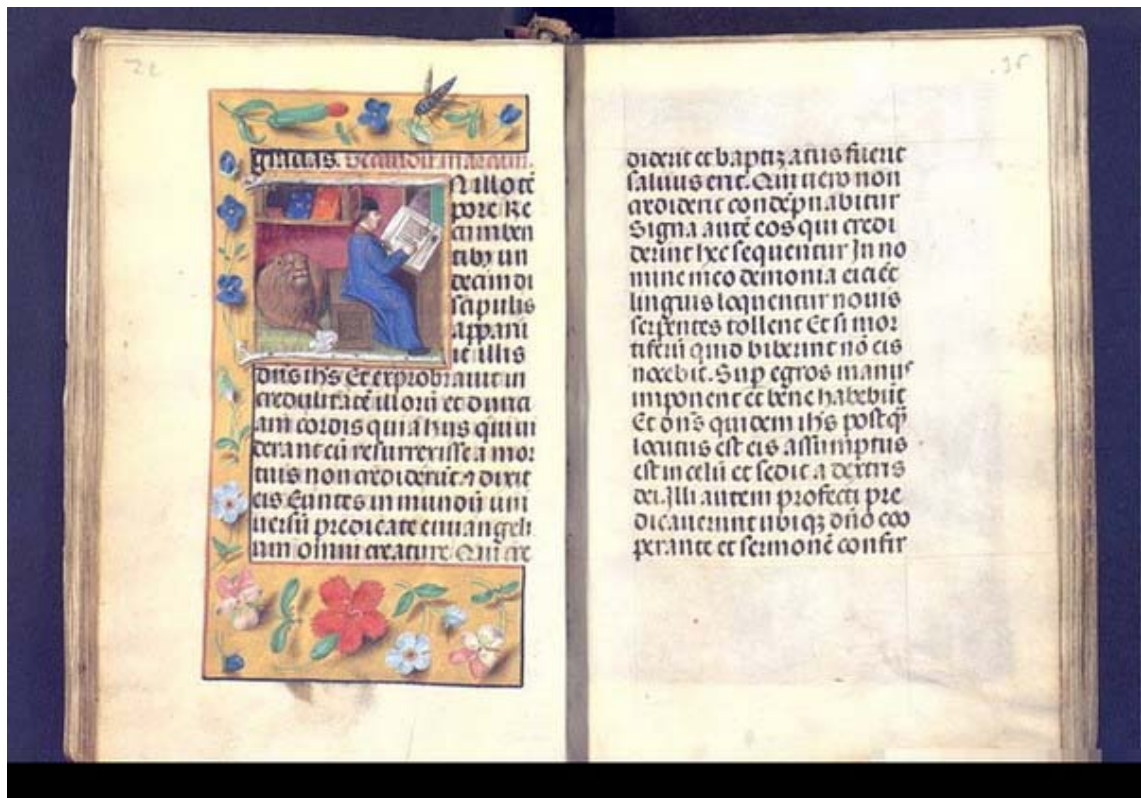 gracias. Secundū marcum.
N illo tē
pore Re
cumben
tibꝰ un
decim di
scipulis
apparu
it illis
dn̄s ihs Et exprobrauit in
credulitatē illorū et durici
am cordis quia hijs qui ui
derant eū resurrexisse a mor
tuis non crediderūt ⁊ dixit
eis Euntes in mundū uni
uersū predicate euuangeli
um omni creature Qui cre
diderit et baptizatus fuerit
saluus erit. Qui uero non
crediderit condēpnabitur
Signa autē eos qui credi
derint hec sequentur In no
mine meo demonia eiciēt
linguis loquentur nouis
serpentes tollent Et si mor
tiferū quid biberint nō eis
nocebit. Sup egros manus
imponent et bene habebūt
Et dn̄s quidem ihs postq̄
locutus est eis assumptus
est in celū et sedit a dextris
dei. Illi autem profecti pre
dicauerunt ubiqꝫ dn̄o coo
perante et sermonē confir